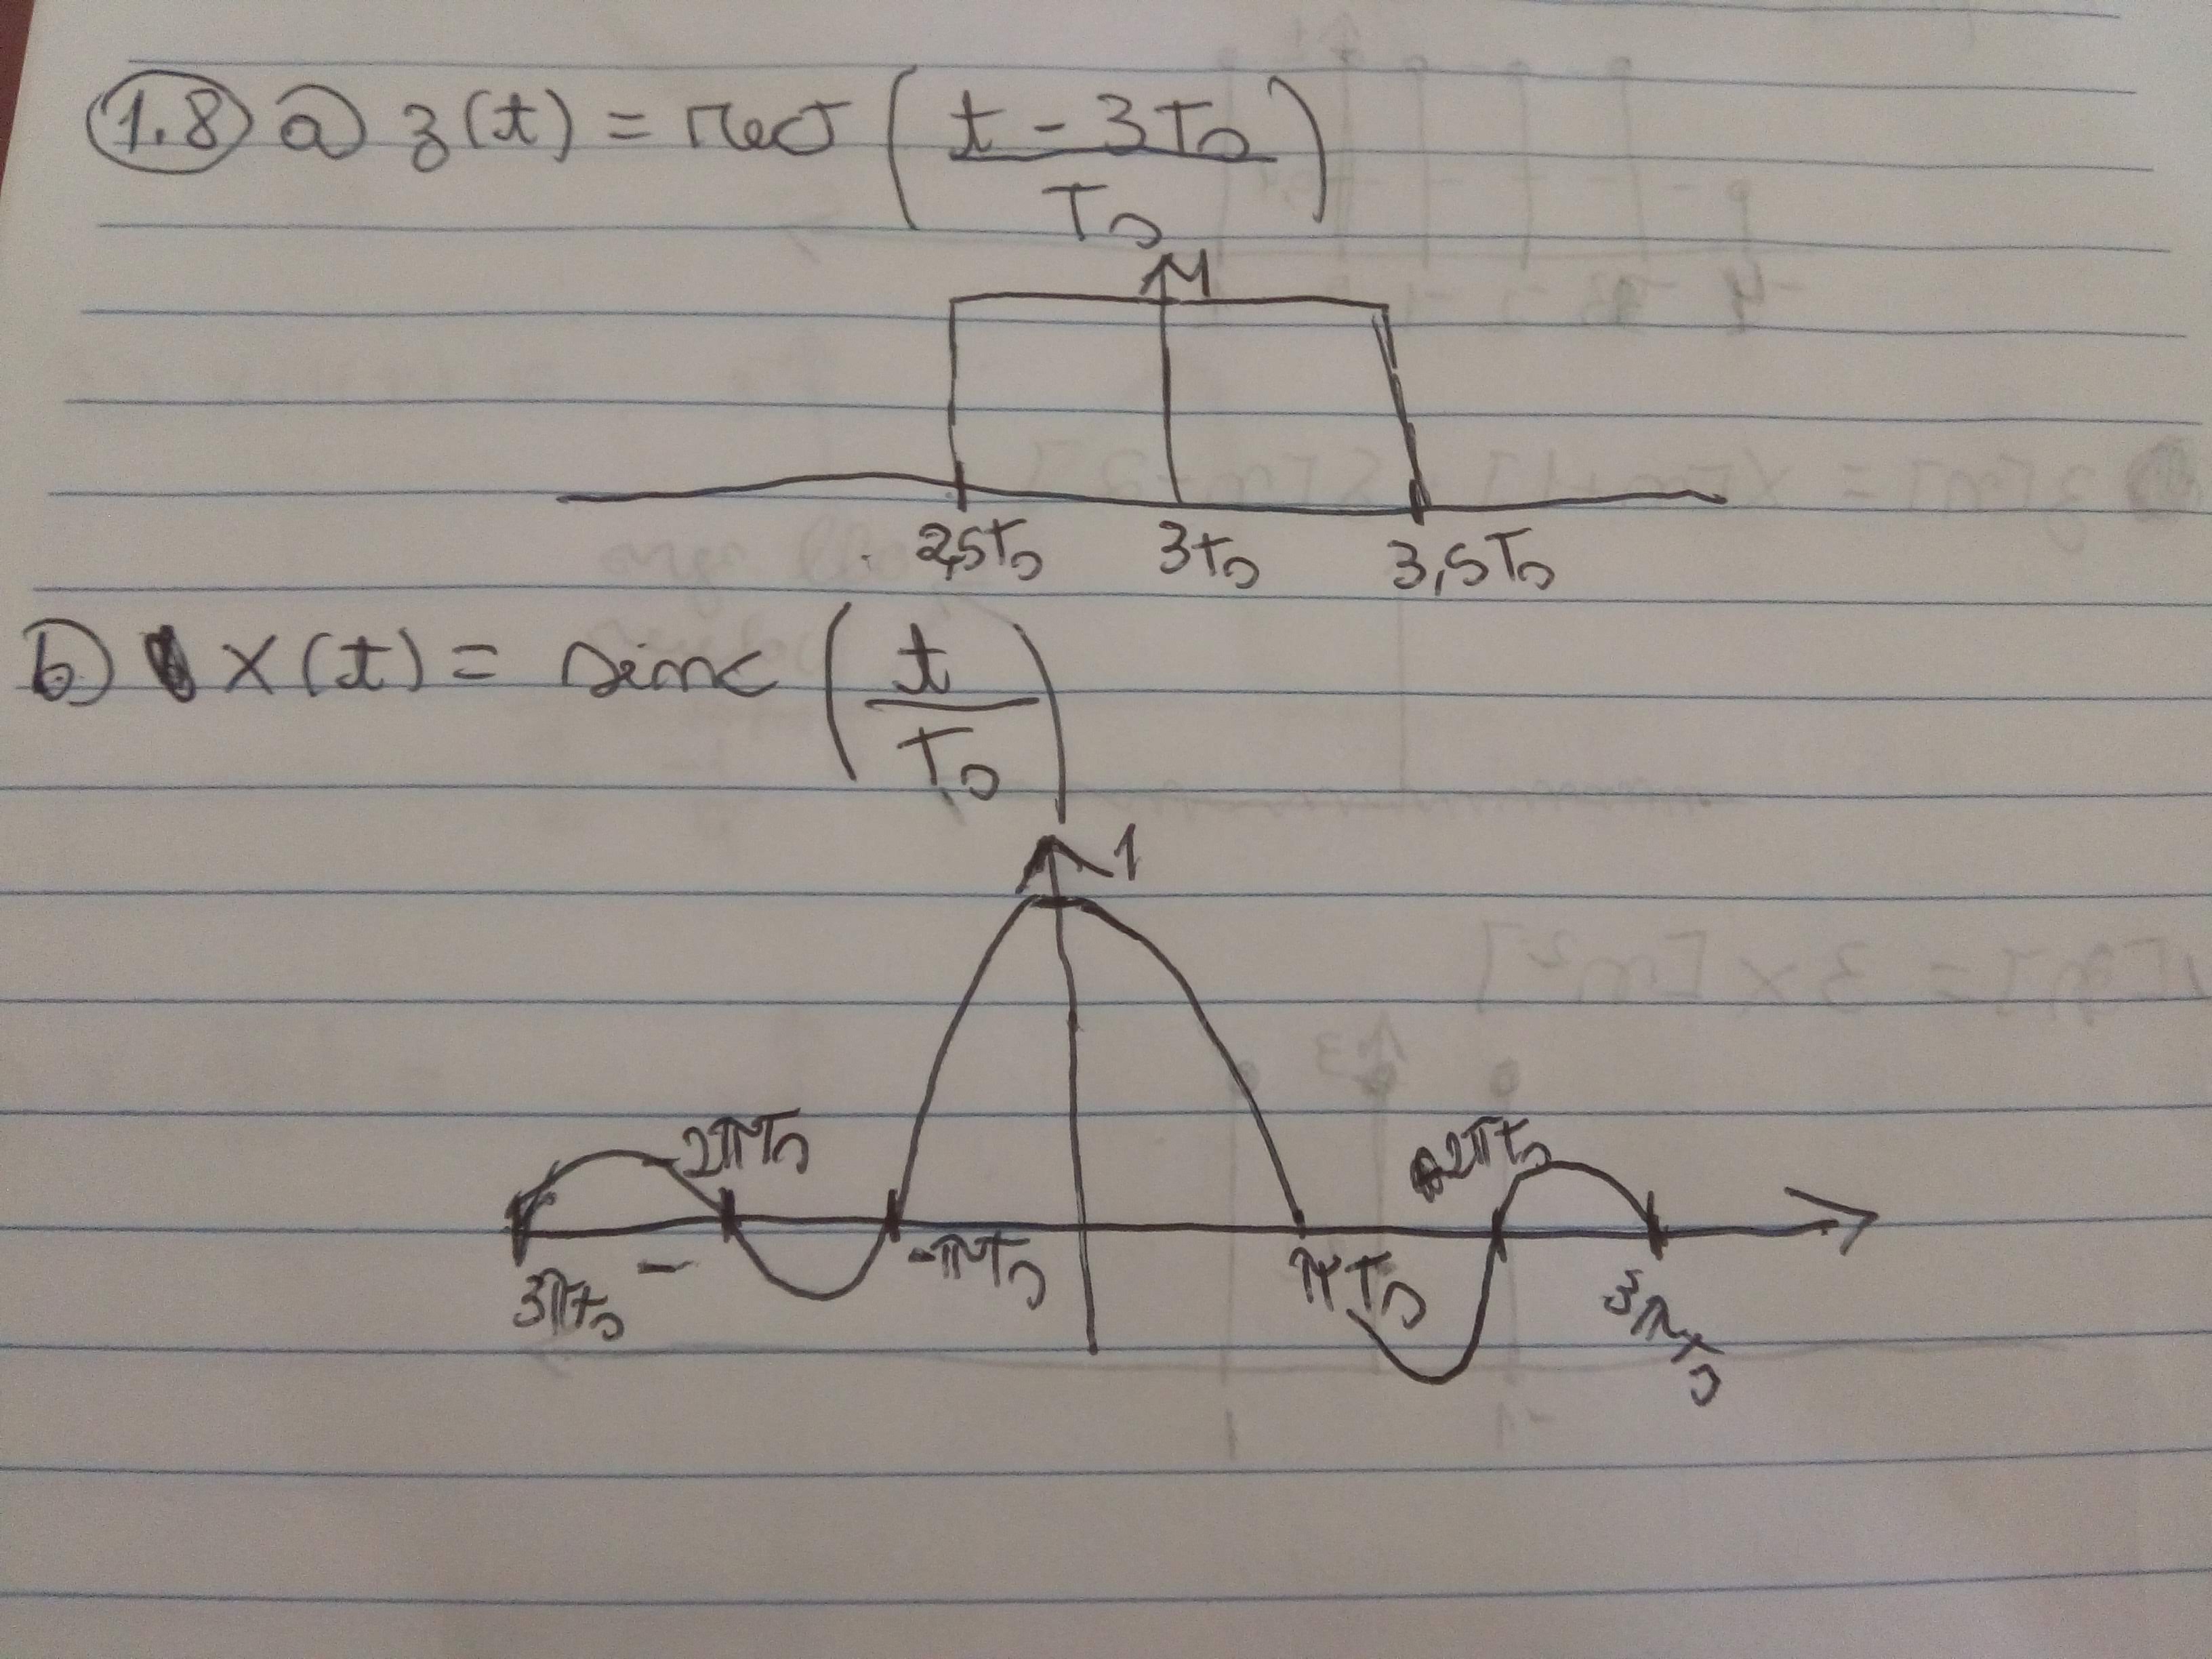 1.8 a) z(t) = rect ( t - 3T₀ / T₀ )
1
2,5T₀ 3T₀ 3,5T₀
b) x(t) = sinc ( t / T₀ )
1
2πT₀ 2πT₀
3πT₀ - -πT₀ πT₀ 3πT₀